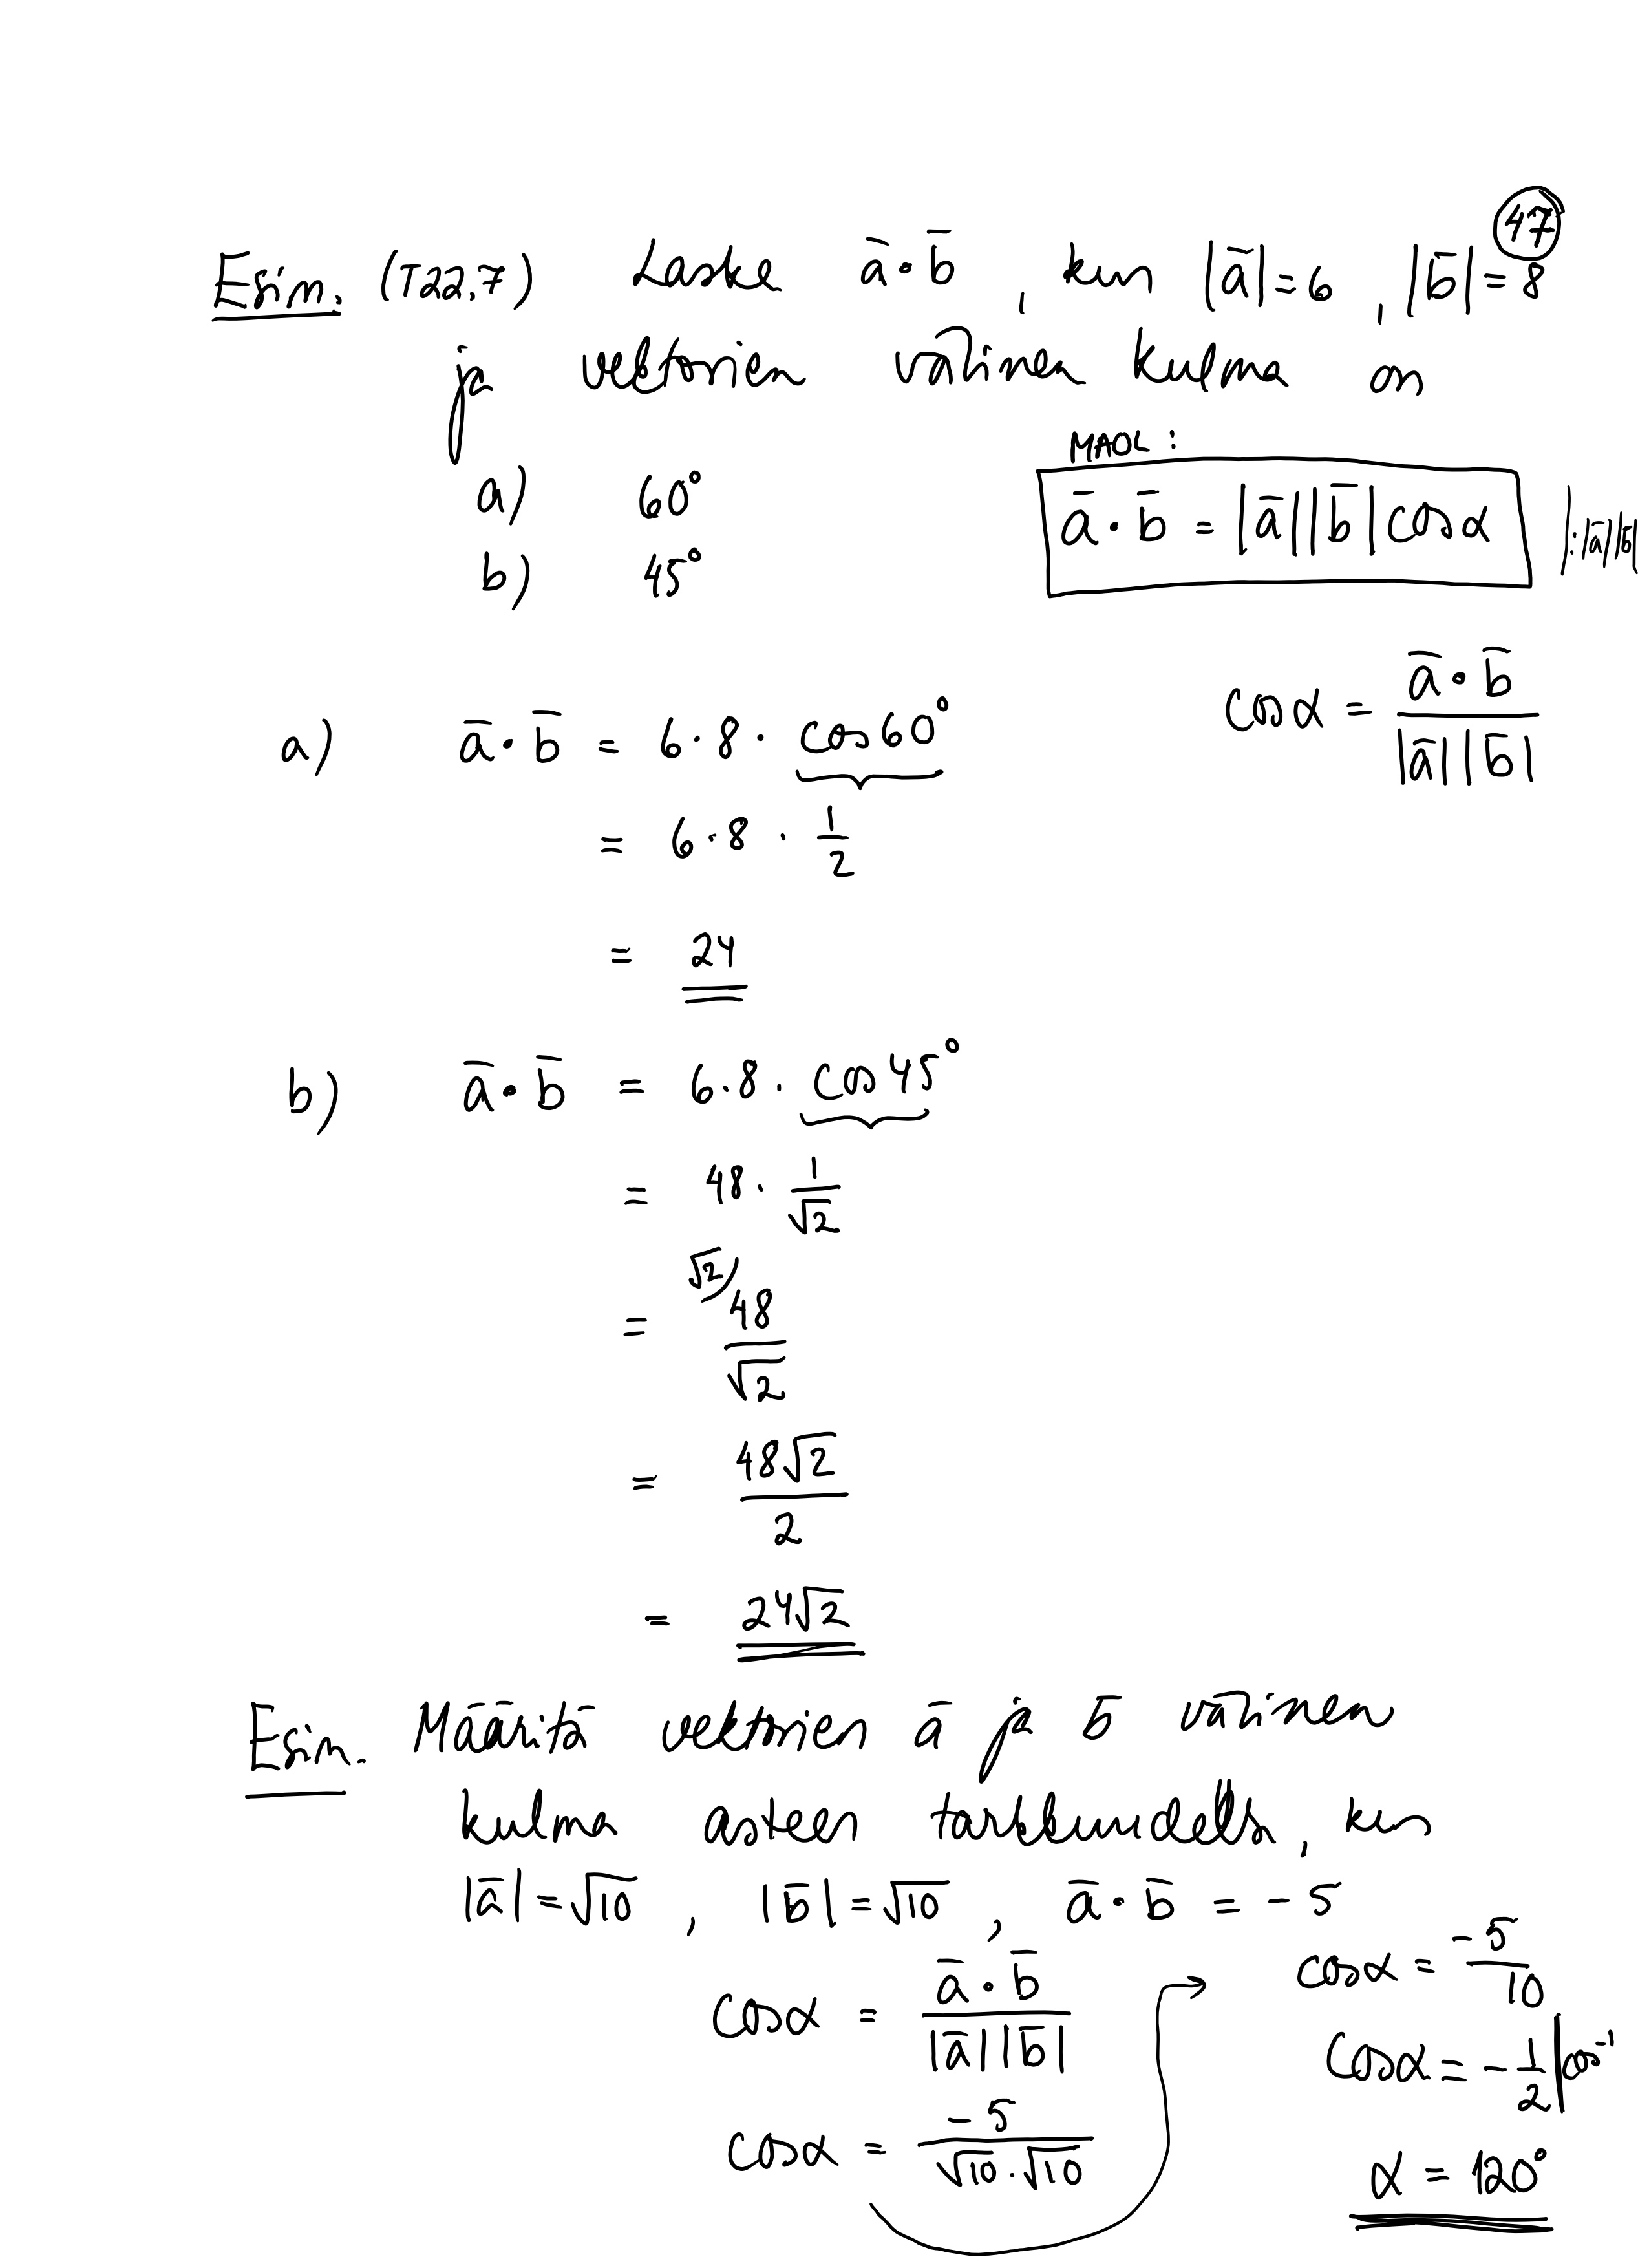 47
Esim. (T22.7) Laske a̅·b̅, kun |a̅|=6, |b̅|=8
ja vektorien välinen kulma on
a) 60°
b) 45°
MAOL:
a̅·b̅ = |a̅||b̅|cosα |:|a̅||b̅|
cosα = a̅·b̅ / |a̅||b̅|
a) a̅·b̅ = 6·8·cos60°
= 6·8·1/2
= 24
b) a̅·b̅ = 6·8·cos45°
= 48·1/√2
= √2) 48/√2
= 48√2/2
= 24√2
Esim. Määritä vektorien a̅ ja b̅ välinen
kulma asteen tarkkuudella, kun
|a̅|=√10, |b̅|=√10, a̅·b̅ = -5
cosα = a̅·b̅ / |a̅||b̅|
cosα = -5 / √10·√10
cosα = -5/10
cosα = -1/2 |cos⁻¹
α = 120°